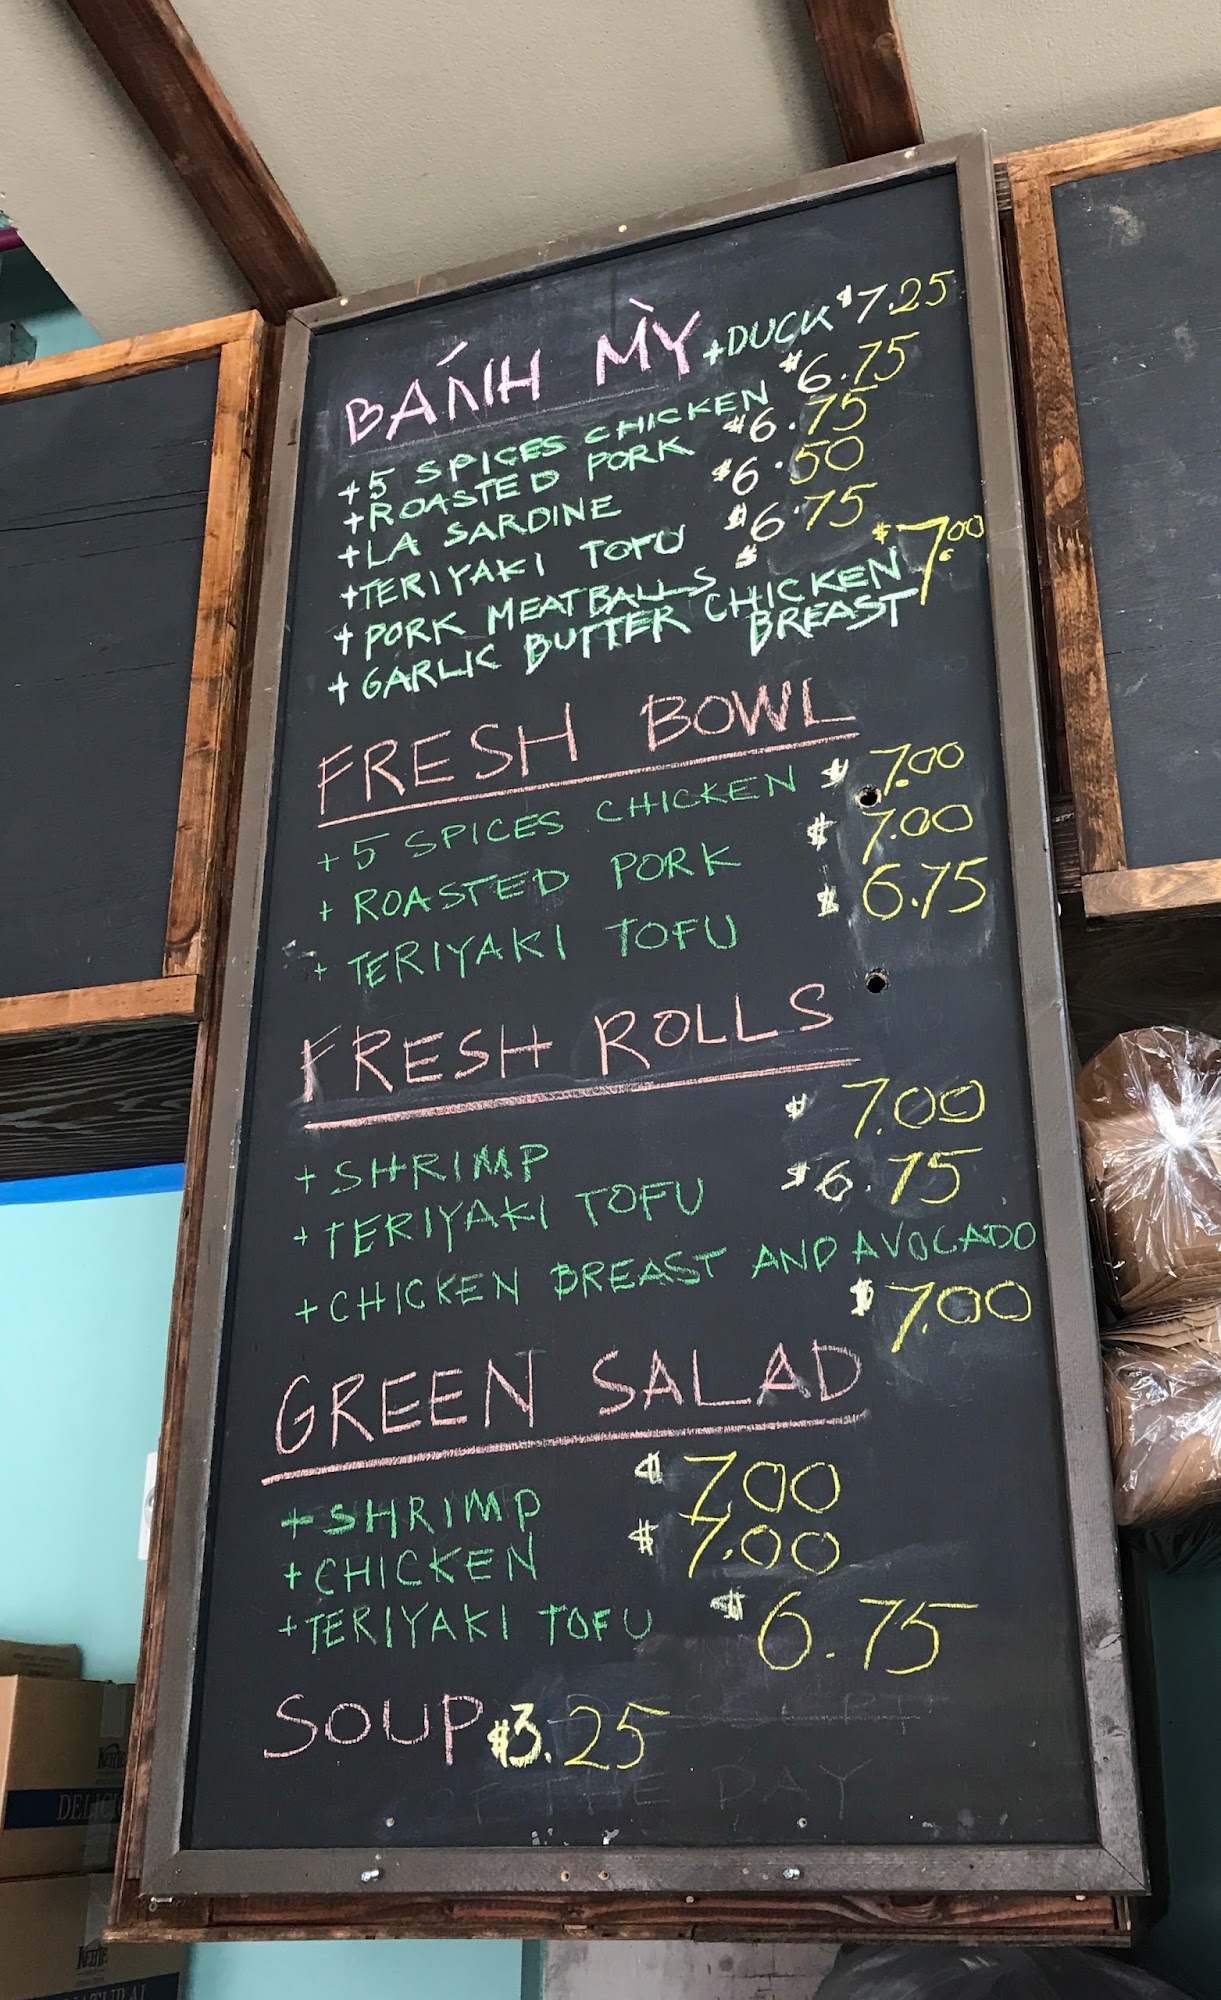 BÁNH MỲ +DUCK $7.25
+5 SPICES CHICKEN $6.75
+ROASTED PORK $6.75
+LA SARDINE $6.50
+TERIYAKI TOFU $6.75
+PORK MEATBALLS $
+GARLIC BUTTER CHICKEN $7.00
BREAST
FRESH BOWL
+5 SPICES CHICKEN $7.00
+ROASTED PORK $7.00
+TERIYAKI TOFU $6.75
FRESH ROLLS
+SHRIMP $7.00
+TERIYAKI TOFU $6.75
+CHICKEN BREAST AND AVOCADO
$7.00
GREEN SALAD
+SHRIMP $7.00
+CHICKEN $7.00
+TERIYAKI TOFU $6.75
SOUP $3.25
OF THE DAY